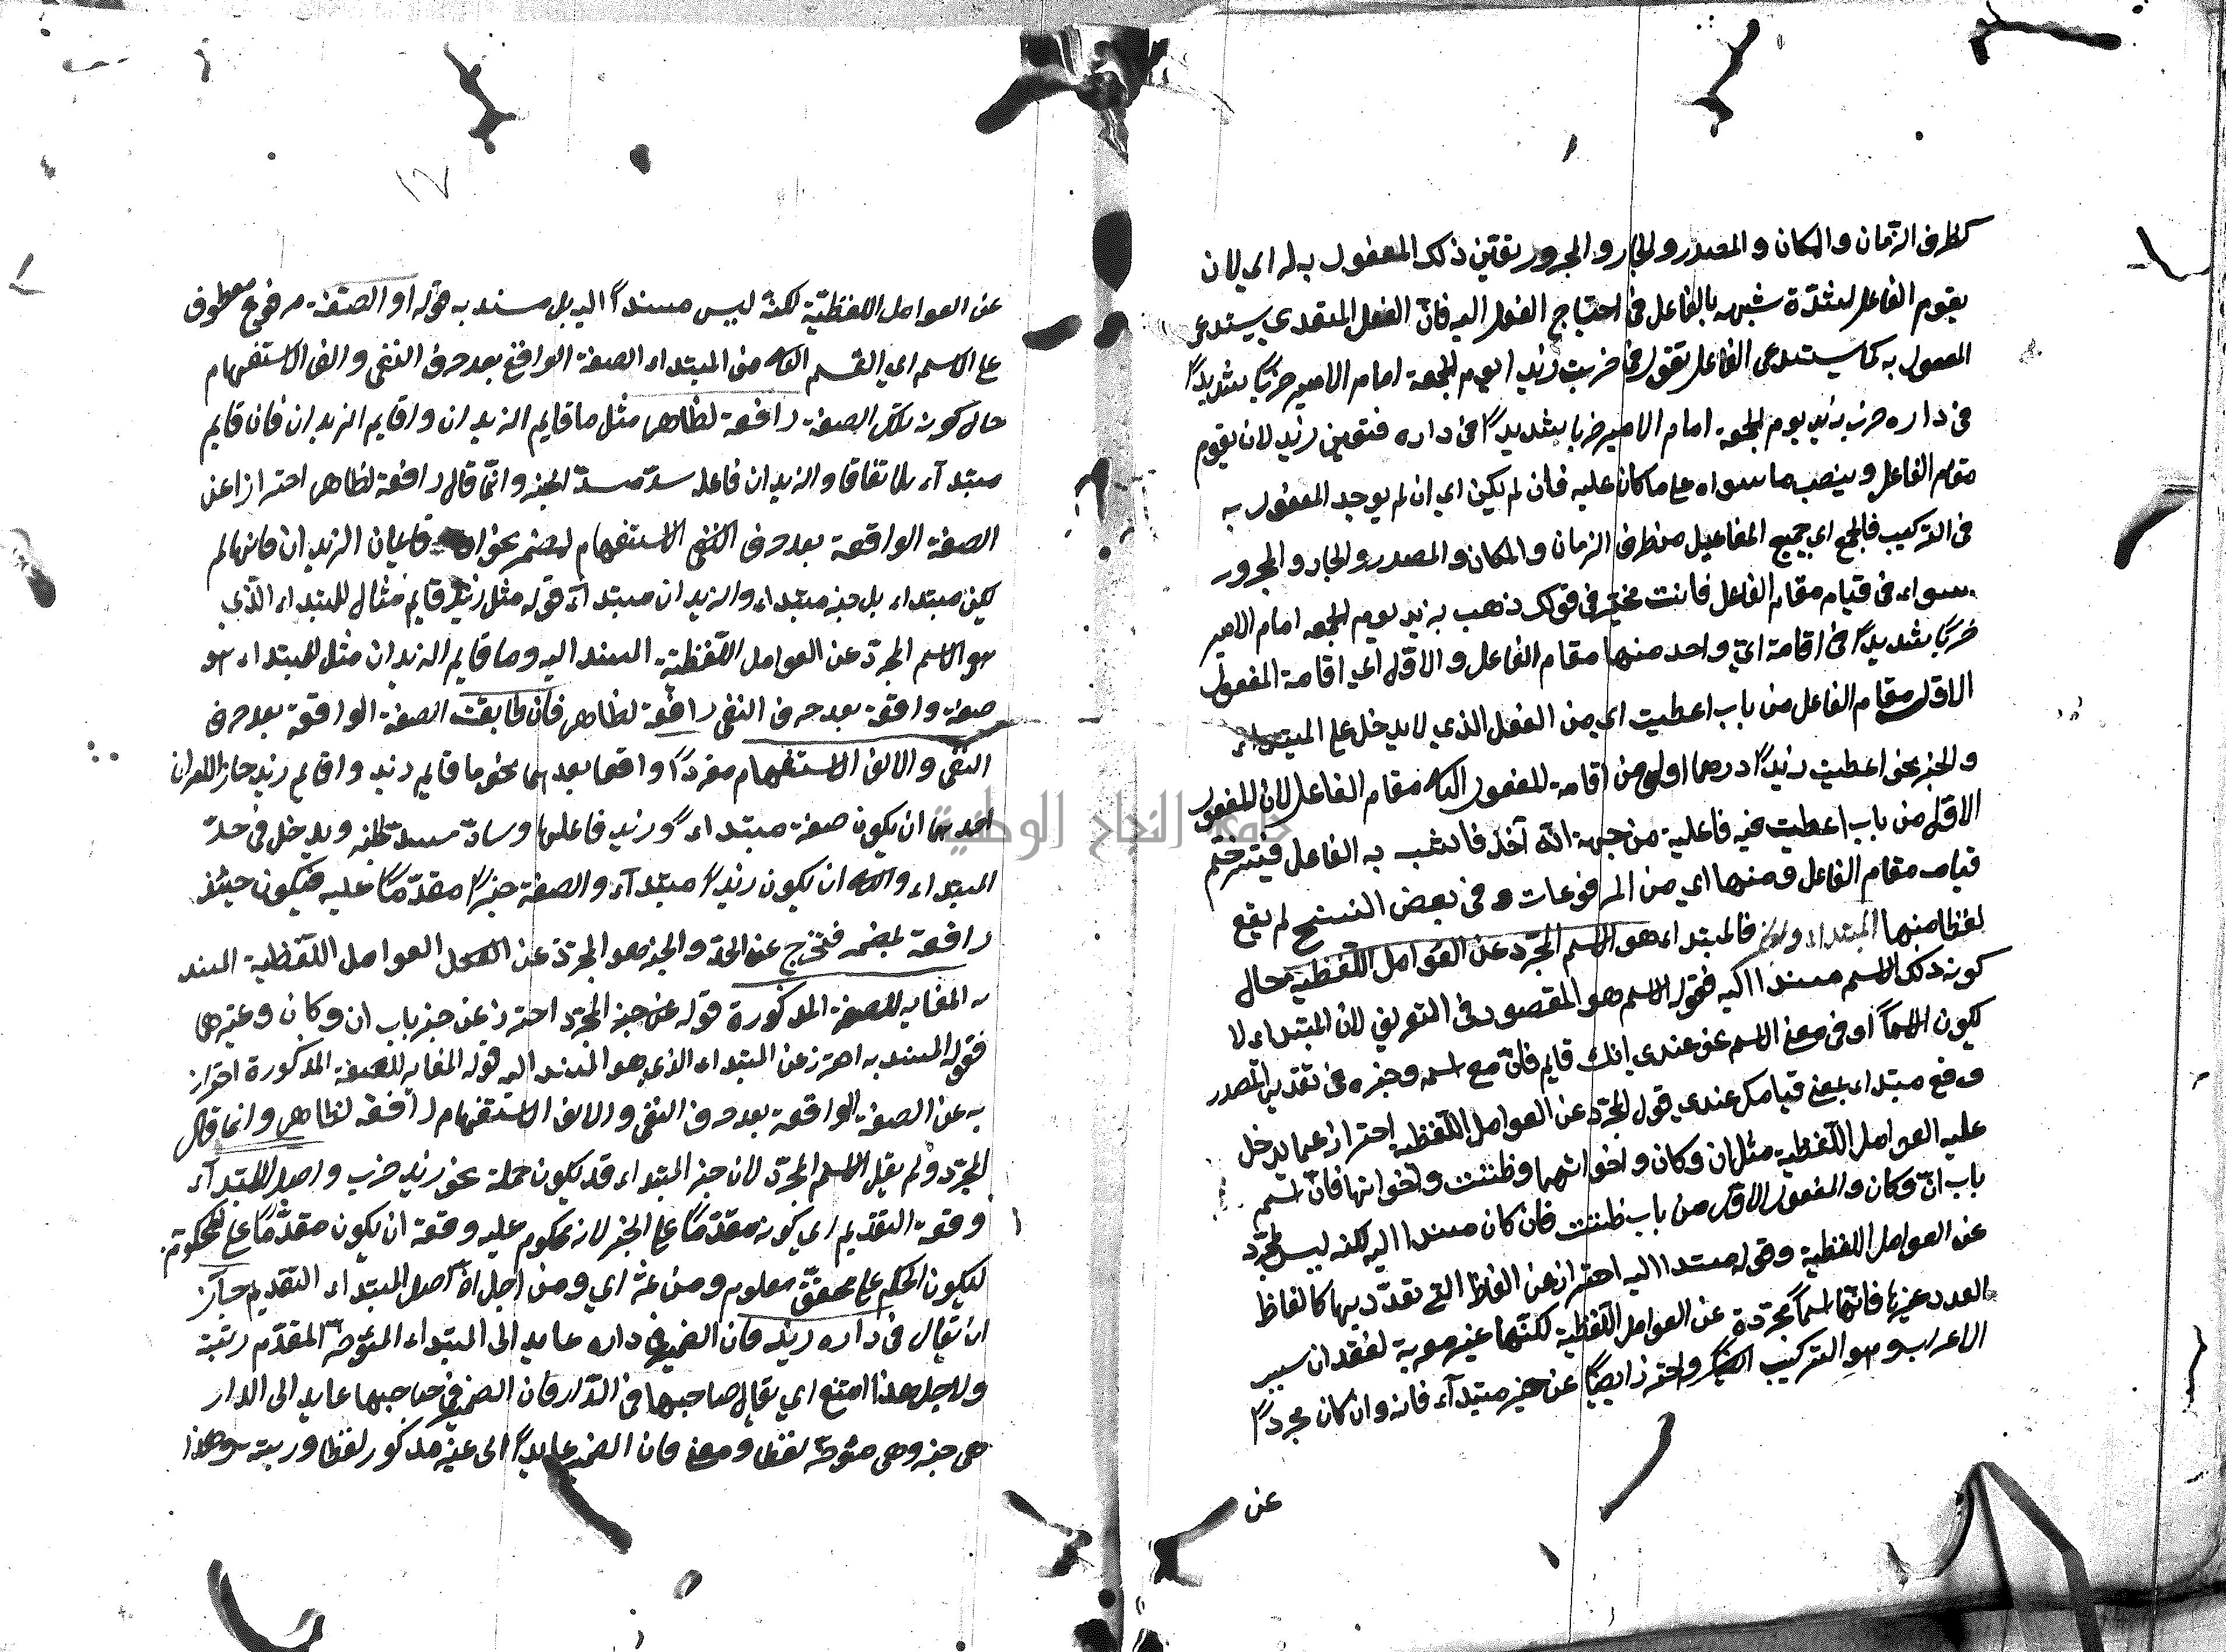 كظرف الزمان والمكان والمصدر والجار والمجرور تعين ذلك المفعول به له اي لان
يقوم الفاعل لشدة شبهه بالفاعل في احتياج الفعل اليه فان الفعل المتعدي يستدعي
المفعول به كما يستدعي الفاعل تقول في ضربت زيدا يوم الجمعة امام الامير ضربًا شديدًا
في داره ضرب زيد يوم الجمعة امام الامير ضربا شديدًا في داره فتعين زيد لان يقوم
مقام الفاعل وينصب ما سواه على ما كان عليه فان لم يكن اي ان لم يوجد المفعول به
في التركيب فالجميع اي جميع المفاعيل من ظرف الزمان والمكان والمصدر والجار والمجرور
سواء في قيام مقام الفاعل فانت مخير في قولك ذهب بزيد يوم الجمعه امام الامير
ضربًا شديدًا في اقامة اي واحد منها مقام الفاعل والاول اي اقامة المفعول
الاول مقام الفاعل من باب اعطيت اي من الفعل الذي لا يدخل على المبتداء
والخبر نحو اعطيت زيدًا درهما اولى من اقامة المفعول الثاني مقام الفاعل لان المفعول
الاول من باب اعطيت فيه فاعلية من جهة انه آخذ فاشبه به الفاعل فيترحم
قيامه مقام الفاعل ومنها اي من المرفوعات وفي بعض النسخ لم يقع
لفظا منها المبتداء والخبر فالمبتداء هو الاسم المجرد عن العوامل اللفظية حال
كونه ذلك الاسم مسندا اليه فقوله الاسم هو المقصود في التعريف لان المبتداء لا
يكون الا اسمًا او في معنى الاسم نحو عندي انك قايم فان مع اسمه وخبره في تقدير المصدر
وقع مبتداء بمعنى قيامك عندي قوله المجرد عن العوامل اللفظية احتراز عما يدخل
عليه العوامل اللفظية مثل ان وكان واخواتهما وظننت واخواتها فان اسم
باب ان وكان والمفعول الاول من باب ظننت فان كان مسندا اليه لكنه ليس بمجرد
عن العوامل اللفظية وقوله مسندا اليه احتراز عن الفاظ التي تعدد بها كالفاظ
العدد غيرها فانها اسمًا مجردة عن العوامل اللفظية لكنها غير معربة لفقدان سبب
الاعراب وهو التركيب واحترز ايضًا عن خبر مبتدآء فانه وان كان مجردًا
عن
١٧
عن العوامل اللفظية لكنه ليس مسندًا اليه بل مسند به قوله او الصفة مرفوع معطوف
على الاسم اي القسم الثاني من المبتداء الصفة الواقع بعد حرف النفي والف الاستفهام
حال كون تلك الصفة رافعة لظاهر مثل ما قايم الزيدان واقايم الزيدان فان قايم
مبتدآء بلا تفاقا والزيدان فاعله سد مسد الخبر وانما قال رافعة لظاهر احترازا عن
الصفة الواقعة بعد حرف النفي الاستفهام لمضمر نحو قايمان الزيدان فانها لم
يكن مبتداء بل خبر مبتداء والزيدان مبتدآء قوله مثل زيد قايم مثال للمبتداء الذي
هو الاسم المجرد عن العوامل اللفظية المسند اليه وما قايم الزيدان مثل للمبتداء هو
صفة واقعة بعد حرف النفي رافعة لظاهر فان طابقت الصفة الواقعة بعد حرف
النفي والالف الاستفهام مفردًا واقعا بعدهما نحو ما قايم زيد واقايم زيد جاز الامران
احدهما ان يكون صفة مبتداء وزيد فاعلها وساد مسد خبره ويدخل في حد
المبتداء والثاني ان يكون زيدًا مبتدآء والصفة خبرًا مقدمًا عليه فيكون حينئذ
رافعة لمضمر فتخرج عن الحد والخبر هو المجرد عن العوامل اللفظية المسند
به المغاير للصفة المذكورة قوله عن خبر المجرد احترز عن خبر باب ان وكان وغيرها
فقوله المسند به احترز عن المبتداء الذي هو المسند اليه قوله المغاير للصفة المذكورة احتراز
به عن الصفة الواقعة بعد حرف النفي والالف الاستفهام رافعة لظاهر وانما قال
المجرد ولم يقل الاسم المجرد لان خبر المبتداء قد يكون جملة نحو زيد ضرب واصل المبتدآء
وقعة التقديم اي كونه مقدمًا على الخبر لانه محكوم عليه وقعة ان يكون مقدمًا على المحكوم به
ليكون الحكم على محقق معلوم ومن ثمة اي ومن اجل ان اصل المبتداء التقديم جاز
ان تقال في داره زيد فان الضمير في داره عايد الى المبتداء المؤخر المقدم رتبة
ولاجل هذا امتنع اي يقال صاحبها في الدار فان الضمير في صاحبها عايد الى الدار
هي خبر وهي مؤخر لفظا ومعنى فان الضمير عايدًا الى غير مذكور لفظا ورتبة وهذا